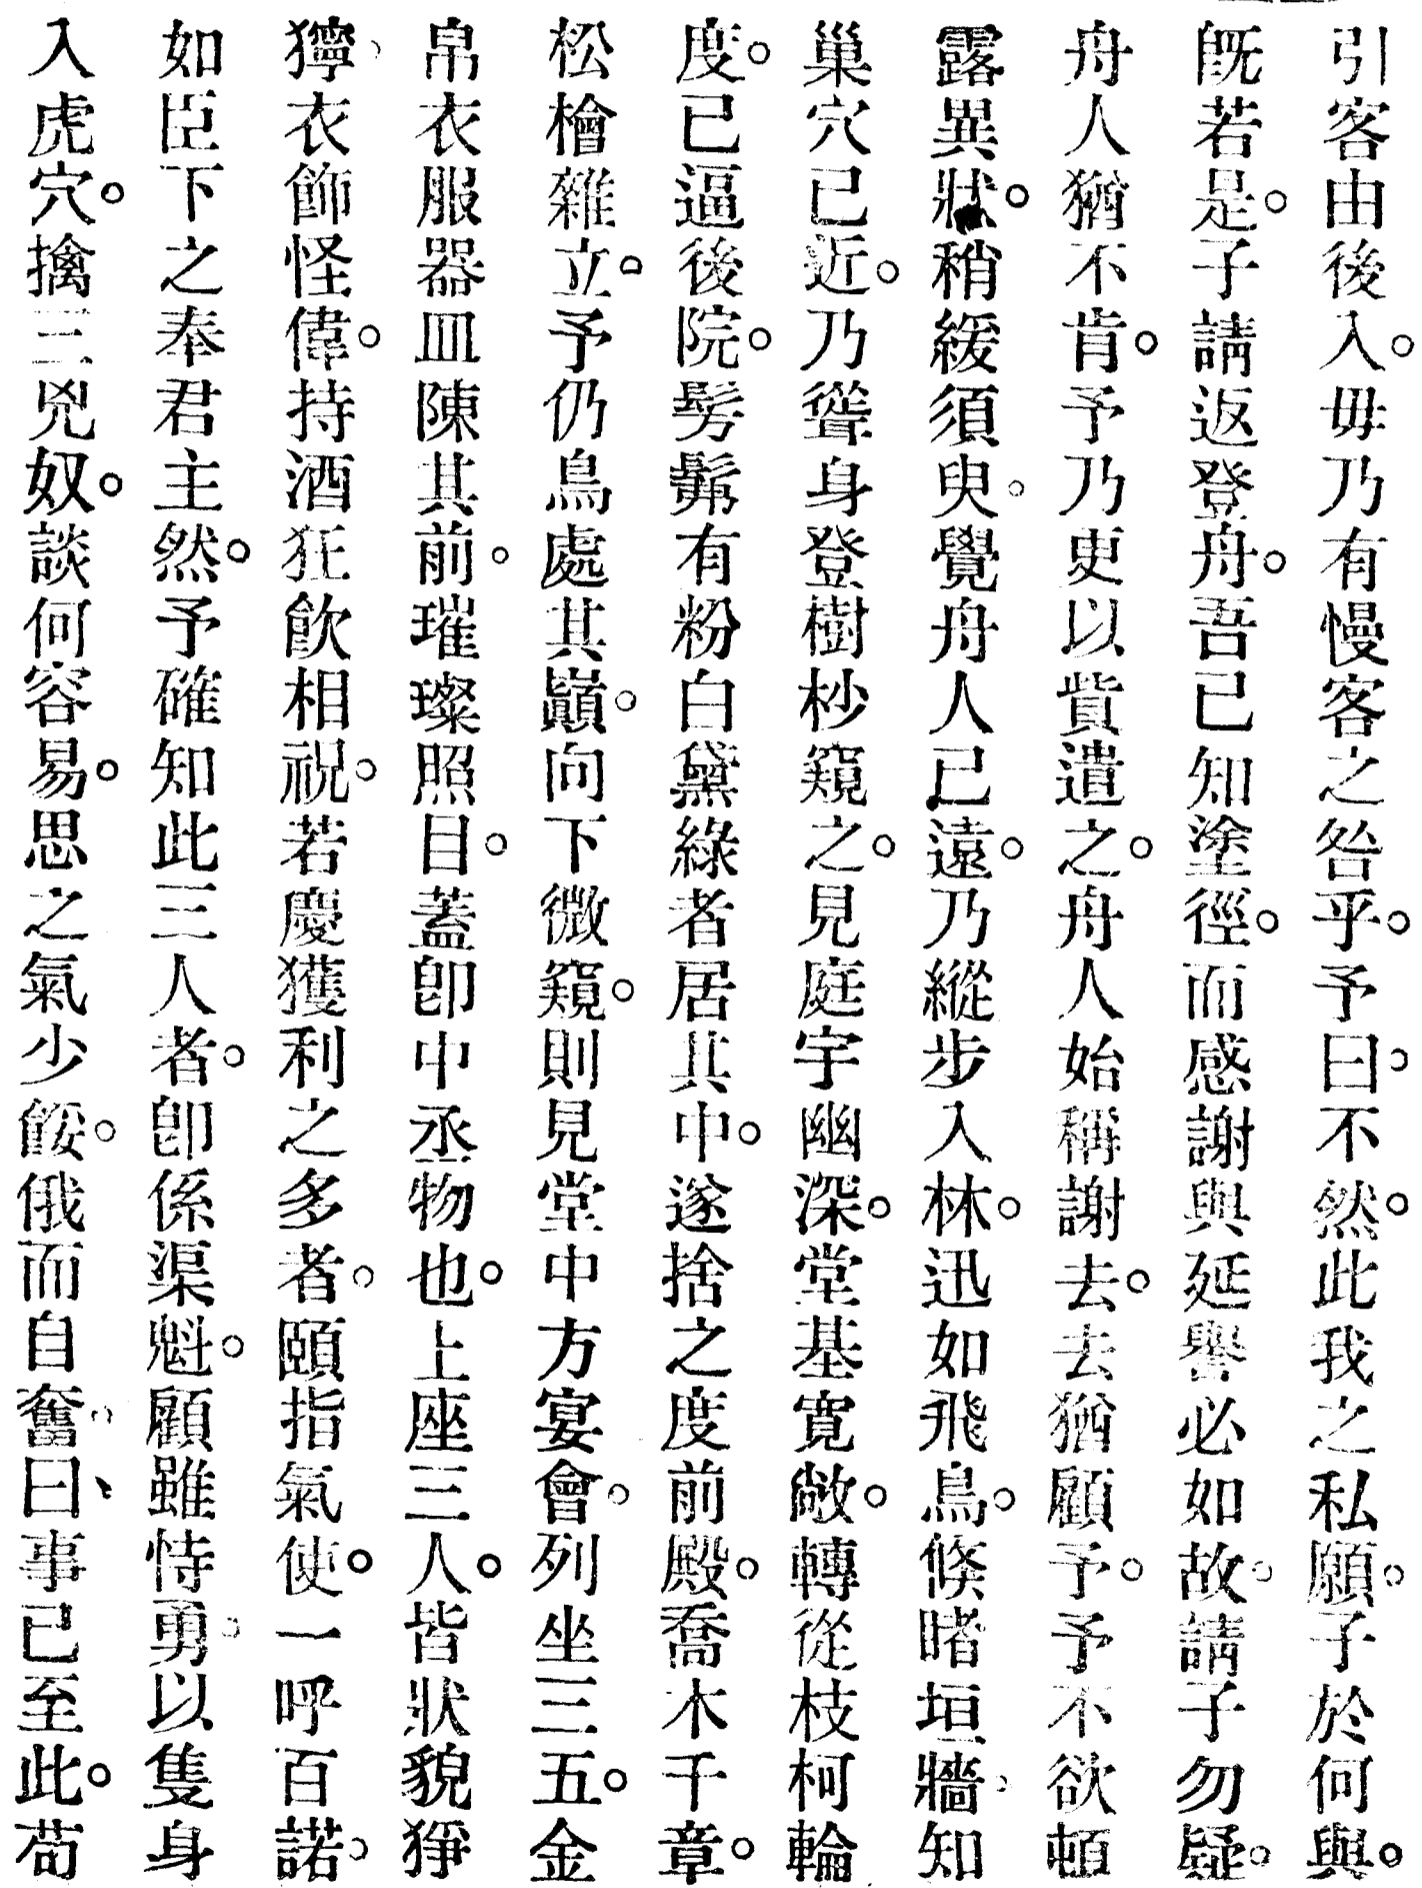 引客由後入。毋乃有慢客之咎乎。予曰。不然。此我之私願。子於何與。
旣若是。子請返登舟。吾已知塗徑。而感謝與延譽必如故。請子勿疑。
舟人猶不肯。予乃更以貲遣之。舟人始稱謝去。去猶顧予。予不欲頓
露異狀。稍緩須臾。覺舟人已遠。乃縱步入林。迅如飛鳥。倏睹垣牆。知
巢穴已近。乃聳身登樹杪窺之。見庭宇幽深。堂基寬敞。轉從枝柯輪
度。已逼後院。髣髴有粉白黛綠者居其中。遂捨之度前殿。喬木千章。
松檜雜立。予仍鳥處其巔。向下微窺。則見堂中方宴會。列坐三五。金
帛衣服器皿陳其前。璀璨照目。蓋卽中丞物也。上座三人。皆狀貌猙
獰。衣飾怪偉。持酒狂飮相祝。若慶獲利之多者。頤指氣使。一呼百諾。
如臣下之奉君主然。予確知此三人者。卽係渠魁。顧雖恃勇。以隻身
入虎穴。擒三兇奴。談何容易。思之氣少餒。俄而自奮。曰、事已至此。苟